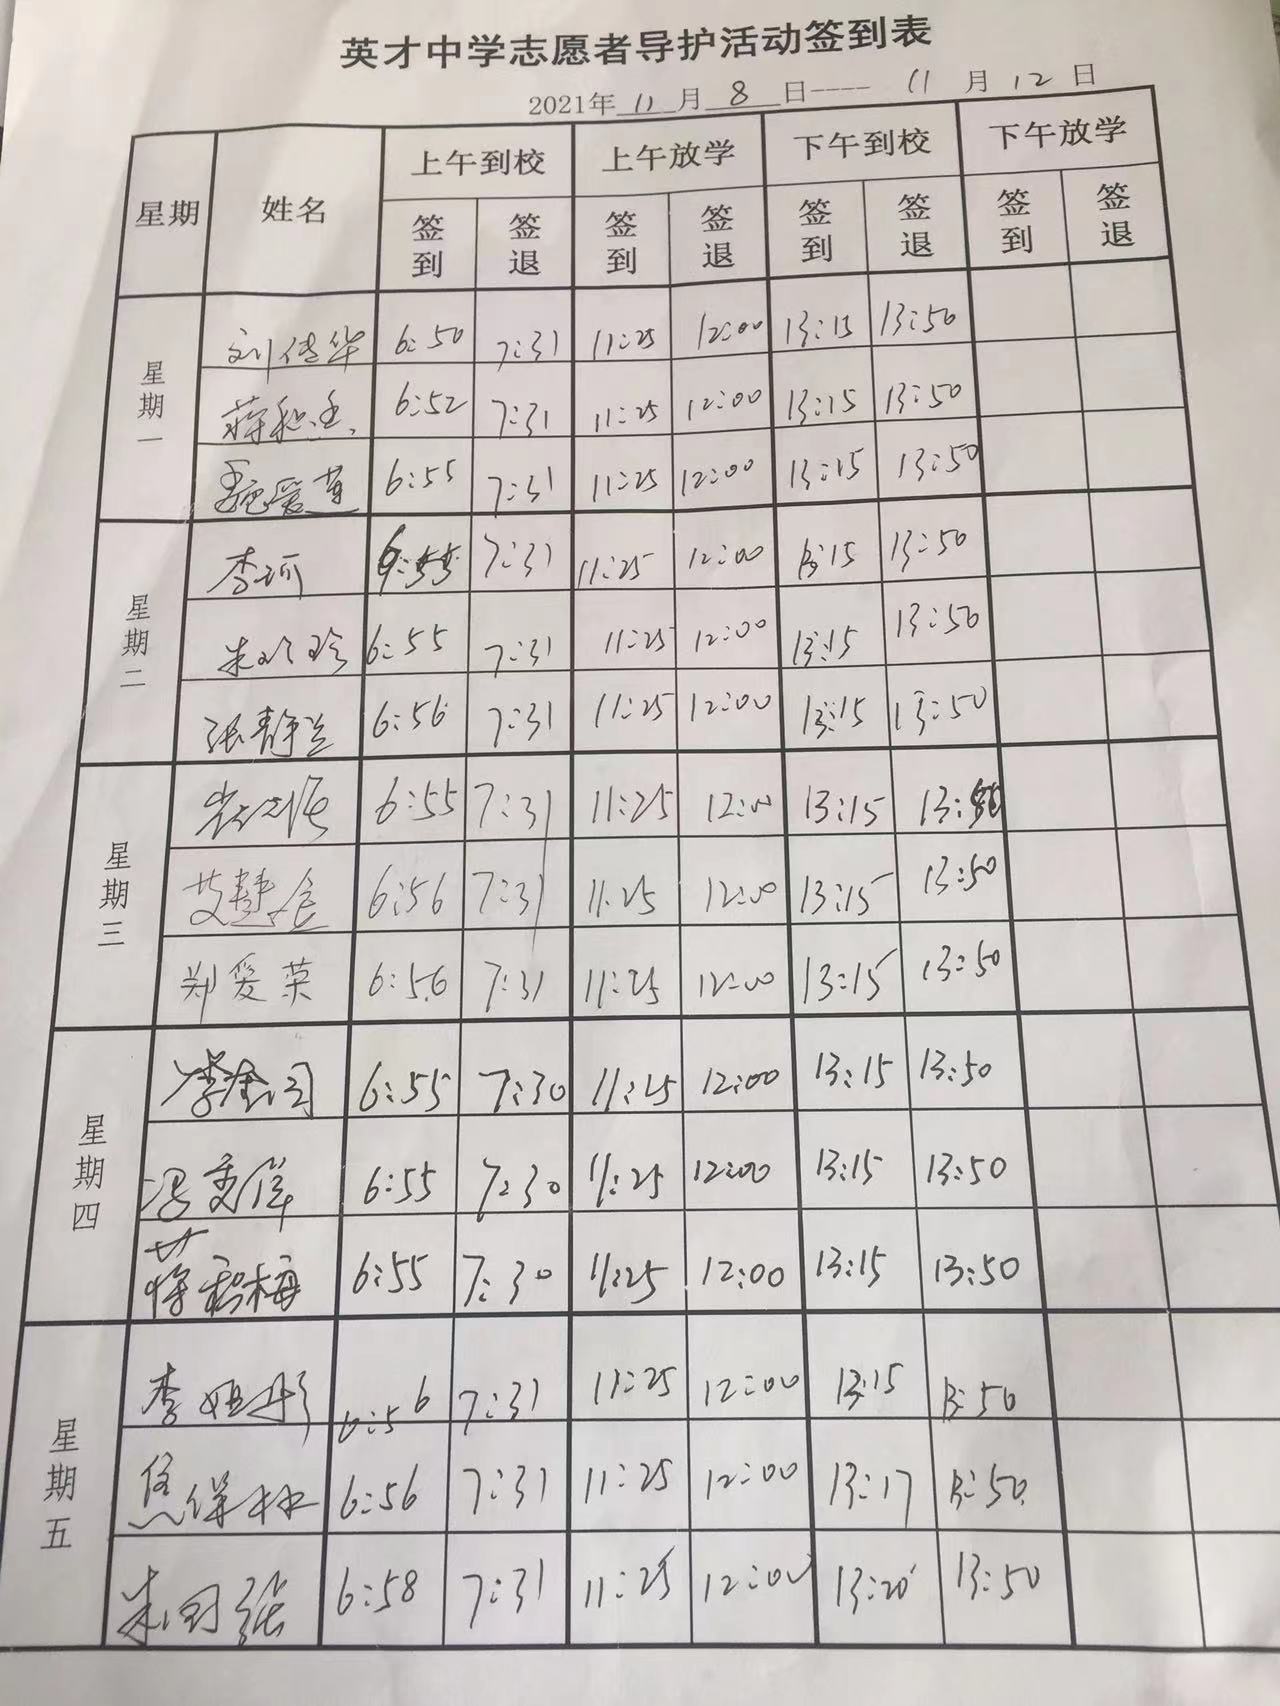 英才中学志愿者导护活动签到表
2021年 11 月 8 日---- 11 月 12 日
星期 姓名 上午到校 上午放学 下午到校 下午放学
签到 签退 签到 签退 签到 签退 签到 签退
星期一
刘传华 6:50 7:31 11:25 12:00 13:15 13:50
6:52 7:31 11:25 12:00 13:15 13:50
魏爱莲 6:55 7:31 11:25 12:00 13:15 13:50
星期二
李珂 6:55 7:31 11:25 12:00 13:15 13:50
朱珍珍 6:55 7:31 11:25 12:00 13:15 13:50
张静兰 6:56 7:31 11:25 12:00 13:15 13:50
星期三
6:55 7:31 11:25 12:00 13:15 13:50
艾慧 6:56 7:31 11:25 12:00 13:15 13:50
郑爱荣 6:56 7:31 11:25 12:00 13:15 13:50
星期四
李 6:55 7:30 11:25 12:00 13:15 13:50
冯 6:55 7:30 11:25 12:00 13:15 13:50
蒋积梅 6:55 7:30 11:25 12:00 13:15 13:50
星期五
李 6:56 7:31 11:25 12:00 13:15 13:50
焦保林 6:56 7:31 11:25 12:00 13:17 13:50
朱 张 6:58 7:31 11:25 12:00 13:20 13:50